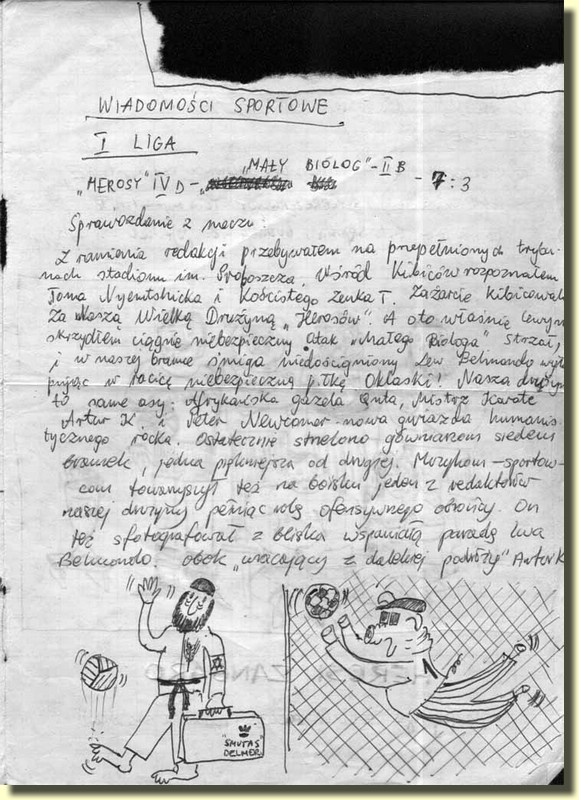 WIADOMOŚCI SPORTOWE
I LIGA
"MAŁY BIOLOG" - II B
"HEROSY" IV D - - 7 : 3
Sprawozdanie z meczu:
Z ramienia redakcji przebywałem na przepełnionych trybu-
nach stadionu im. Proboszcza. Wśród Kibiców rozpoznałem
Toma Nyemtshicka i Kościstego Zenka T. Zażarcie kibicowali
Za Naszą Wielką Drużyną "Herosów". A oto właśnie lewym
skrzydłem ciągnie niebezpieczny atak "Małego Biologa" strzał,
i w naszej bramce śmiga niedościgniony Lew Belmondo wyła
pując w locie niebezpieczną piłkę Oklaski! Nasza drużyna
to same asy: Afrykańska gazela Qnta, Mistrz Karate
Artur K. i Peter Newcomer - nowa gwiazda humanis-
tycznego rocka. Ostatecznie strzelono gówniarzom siedem
bramek, jedna piękniejsza od drugiej. Muzykom - sportow-
com towarzyszył też na boisku jeden z redaktorów
naszej drużyny pełniąc rolę ofensywnego obrońcy. On
też sfotografował z bliska wspaniałą paradę Lwa
Belmondo. obok "wracający z dalekiej podróży" Artur K
"SMUTAS"
DELMER